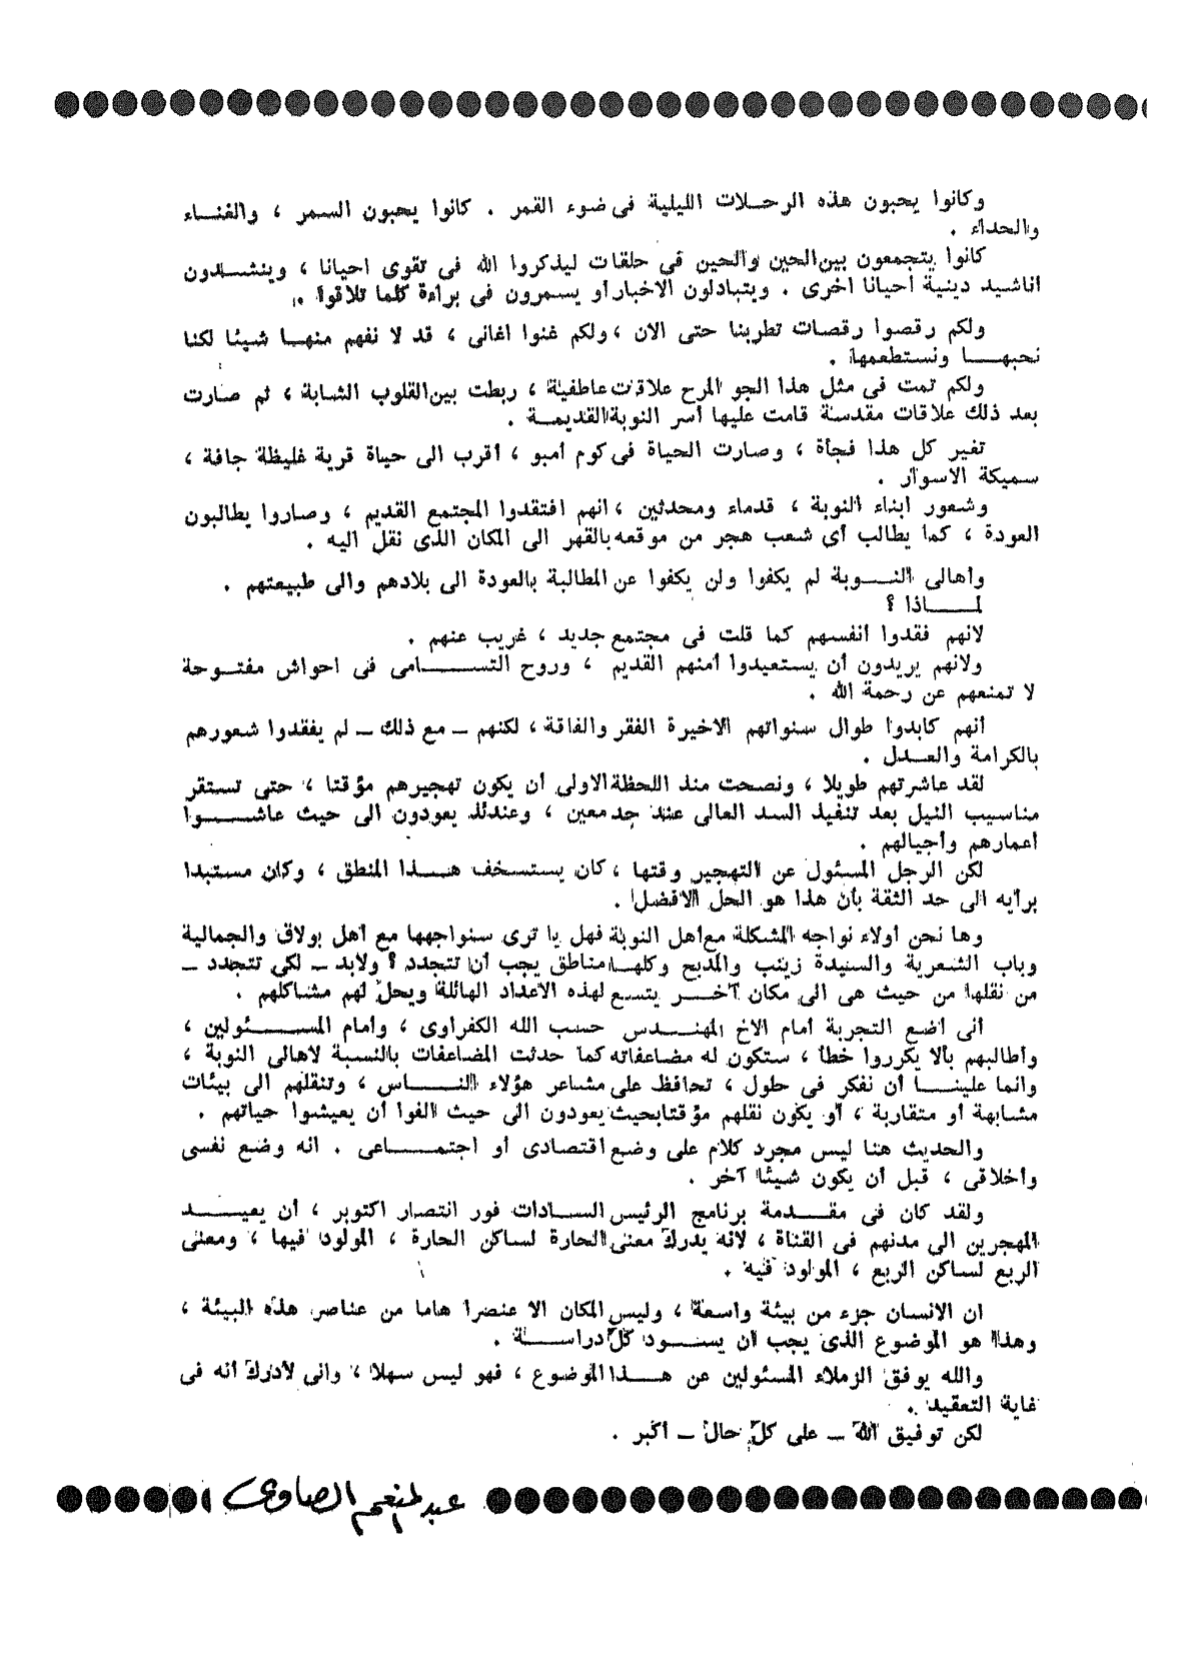 وكانوا يحبون هذه الرحلات الليلية فى ضوء القمر . كانوا يحبون السمر ، والغناء
والحداء .
كانوا يتجمعون بين الحين والحين فى حلقات ليذكروا الله فى تقوى احيانا ، وينشدون
اناشيد دينية أحيانا أخرى . ويتبادلون الاخبار أو يسمرون فى براءة كلما تلاقوا .
ولكم رقصوا رقصات تطربنا حتى الان ، ولكم غنوا اغانى ، قد لا نفهم منها شيئا لكنا
نحبها ونستطعمها .
ولكم تمت فى مثل هذا الجو المرح علاقات عاطفية ، ربطت بين القلوب الشابة ، ثم صارت
بعد ذلك علاقات مقدسة قامت عليها أسر النوبة القديمة .
تغير كل هذا فجأة ، وصارت الحياة فى كوم أمبو ، أقرب الى حياة قرية غليظة جافة ،
سميكة الاسوار .
وشعور ابناء النوبة ، قدماء ومحدثين ، انهم افتقدوا المجتمع القديم ، وصاروا يطالبون
العودة ، كما يطالب أى شعب هجر من موقعه بالقهر الى المكان الذى نقل اليه .
وأهالى النوبة لم يكفوا ولن يكفوا عن المطالبة بالعودة الى بلادهم والى طبيعتهم .
لماذا ؟
لانهم فقدوا أنفسهم كما قلت فى مجتمع جديد ، غريب عنهم .
ولانهم يريدون أن يستعيدوا أمنهم القديم ، وروح التسامى فى احواش مفتوحة
لا تمنعهم عن رحمة الله .
أنهم كابدوا طوال سنواتهم الاخيرة الفقر والفاقة ، لكنهم ــ مع ذلك ــ لم يفقدوا شعورهم
بالكرامة والعدل .
لقد عاشرتهم طويلا ، ونصحت منذ اللحظة الاولى أن يكون تهجيرهم مؤقتا ، حتى تستقر
مناسيب النيل بعد تنفيذ السد العالى عند حد معين ، وعندئذ يعودون الى حيث عاشوا
أعمارهم وأجيالهم .
لكن الرجل المسئول عن التهجير وقتها ، كان يستسخف هذا المنطق ، وكان مستبدا
برأيه الى حد الثقة بأن هذا هو الحل الافضل .
وها نحن أولاء نواجه المشكلة مع أهل النوبة فهل يا ترى سنواجهها مع أهل بولاق والجمالية
وباب الشعرية والسيدة زينب والمدبح وكلها مناطق يجب أن تتجدد ؟ ولابد ــ لكى تتجدد ــ
من نقلها من حيث هى الى مكان آخر يتسع لهذه الاعداد الهائلة ويحل لهم مشاكلهم .
أنى أضع التجربة أمام الاخ المهندس حسب الله الكفراوى ، وأمام المسئولين ،
وأطالبهم بألا يكرروا خطأ ، ستكون له مضاعفاته كما حدثت المضاعفات بالنسبة لاهالى النوبة ،
وانما علينا أن نفكر فى حلول ، تحافظ على مشاعر هؤلاء الناس ، وتنقلهم الى بيئات
مشابهة أو متقاربة ، أو يكون نقلهم مؤقتا بحيث يعودون الى حيث الفوا أن يعيشوا حياتهم .
والحديث هنا ليس مجرد كلام على وضع اقتصادى أو اجتماعى . انه وضع نفسى
وأخلاقى ، قبل أن يكون شيئا آخر .
ولقد كان فى مقدمة برنامج الرئيس السادات فور انتصار اكتوبر ، أن يعيد
المهجرين الى مدنهم فى القناة ، لانه يدرك معنى الحارة لساكن الحارة ، المولود فيها ، ومعنى
الربع لساكن الربع ، المولود فيه .
ان الانسان جزء من بيئة واسعة ، وليس المكان الا عنصرا هاما من عناصر هذه البيئة ،
وهذا هو الموضوع الذى يجب أن يسود كل دراسة .
والله يوفق الزملاء المسئولين عن هذا الموضوع ، فهو ليس سهلا ، وانى لأدرك أنه فى
غاية التعقيد .
لكن توفيق الله ــ على كل حال ــ أكبر .
عبد المنعم الصاوى